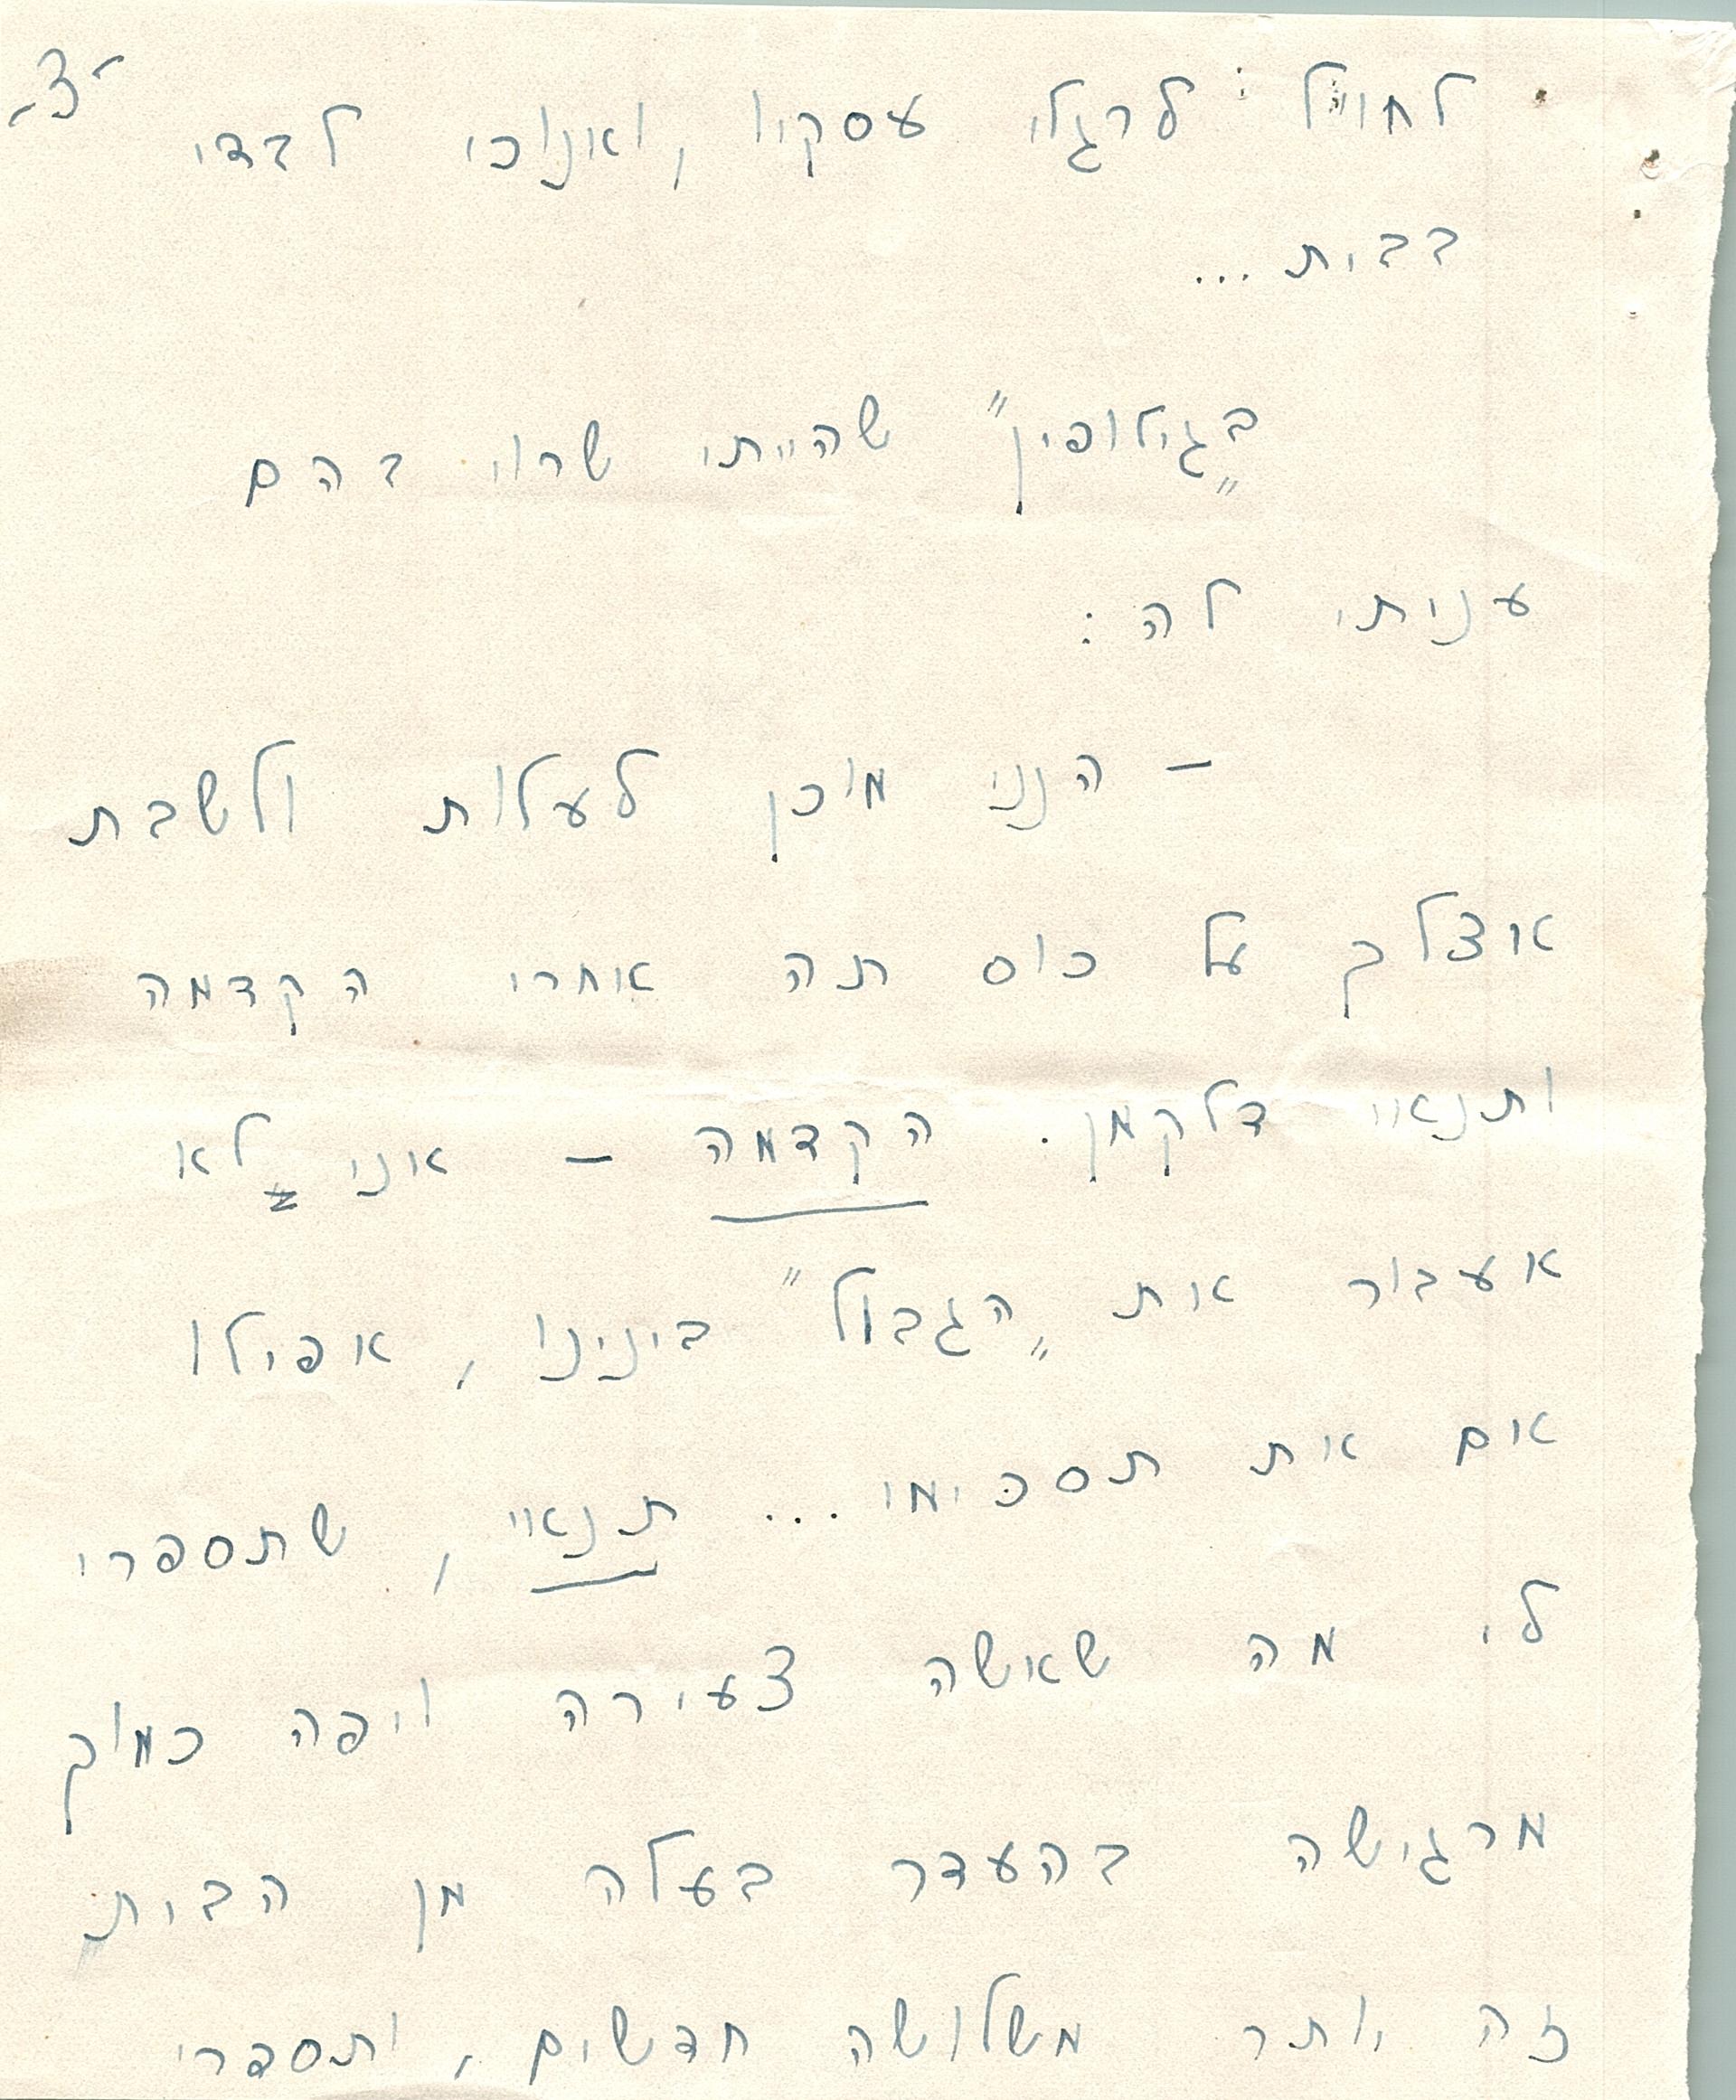 -3-
לחו״ל לרגלי עסקיו, ואנוכי לבדי
בבית...
„בגילופין״ שהייתי שרוי בהם
עניתי לה:
– הנני מוכן לעלות ולשבת
אצלך על כוס תה אחרי הקדמה
ותנאי דלקמן. הקדמה – אני לא
אעבור את „הגבול״ בינינו, אפילו
אם את תסכימי... תנאי, שתספרי
לי מה שאשה צעירה ויפה כמוך
מרגישה בהעדר בעלה מן הבית
זה יותר משלושה חדשים, ותספרי